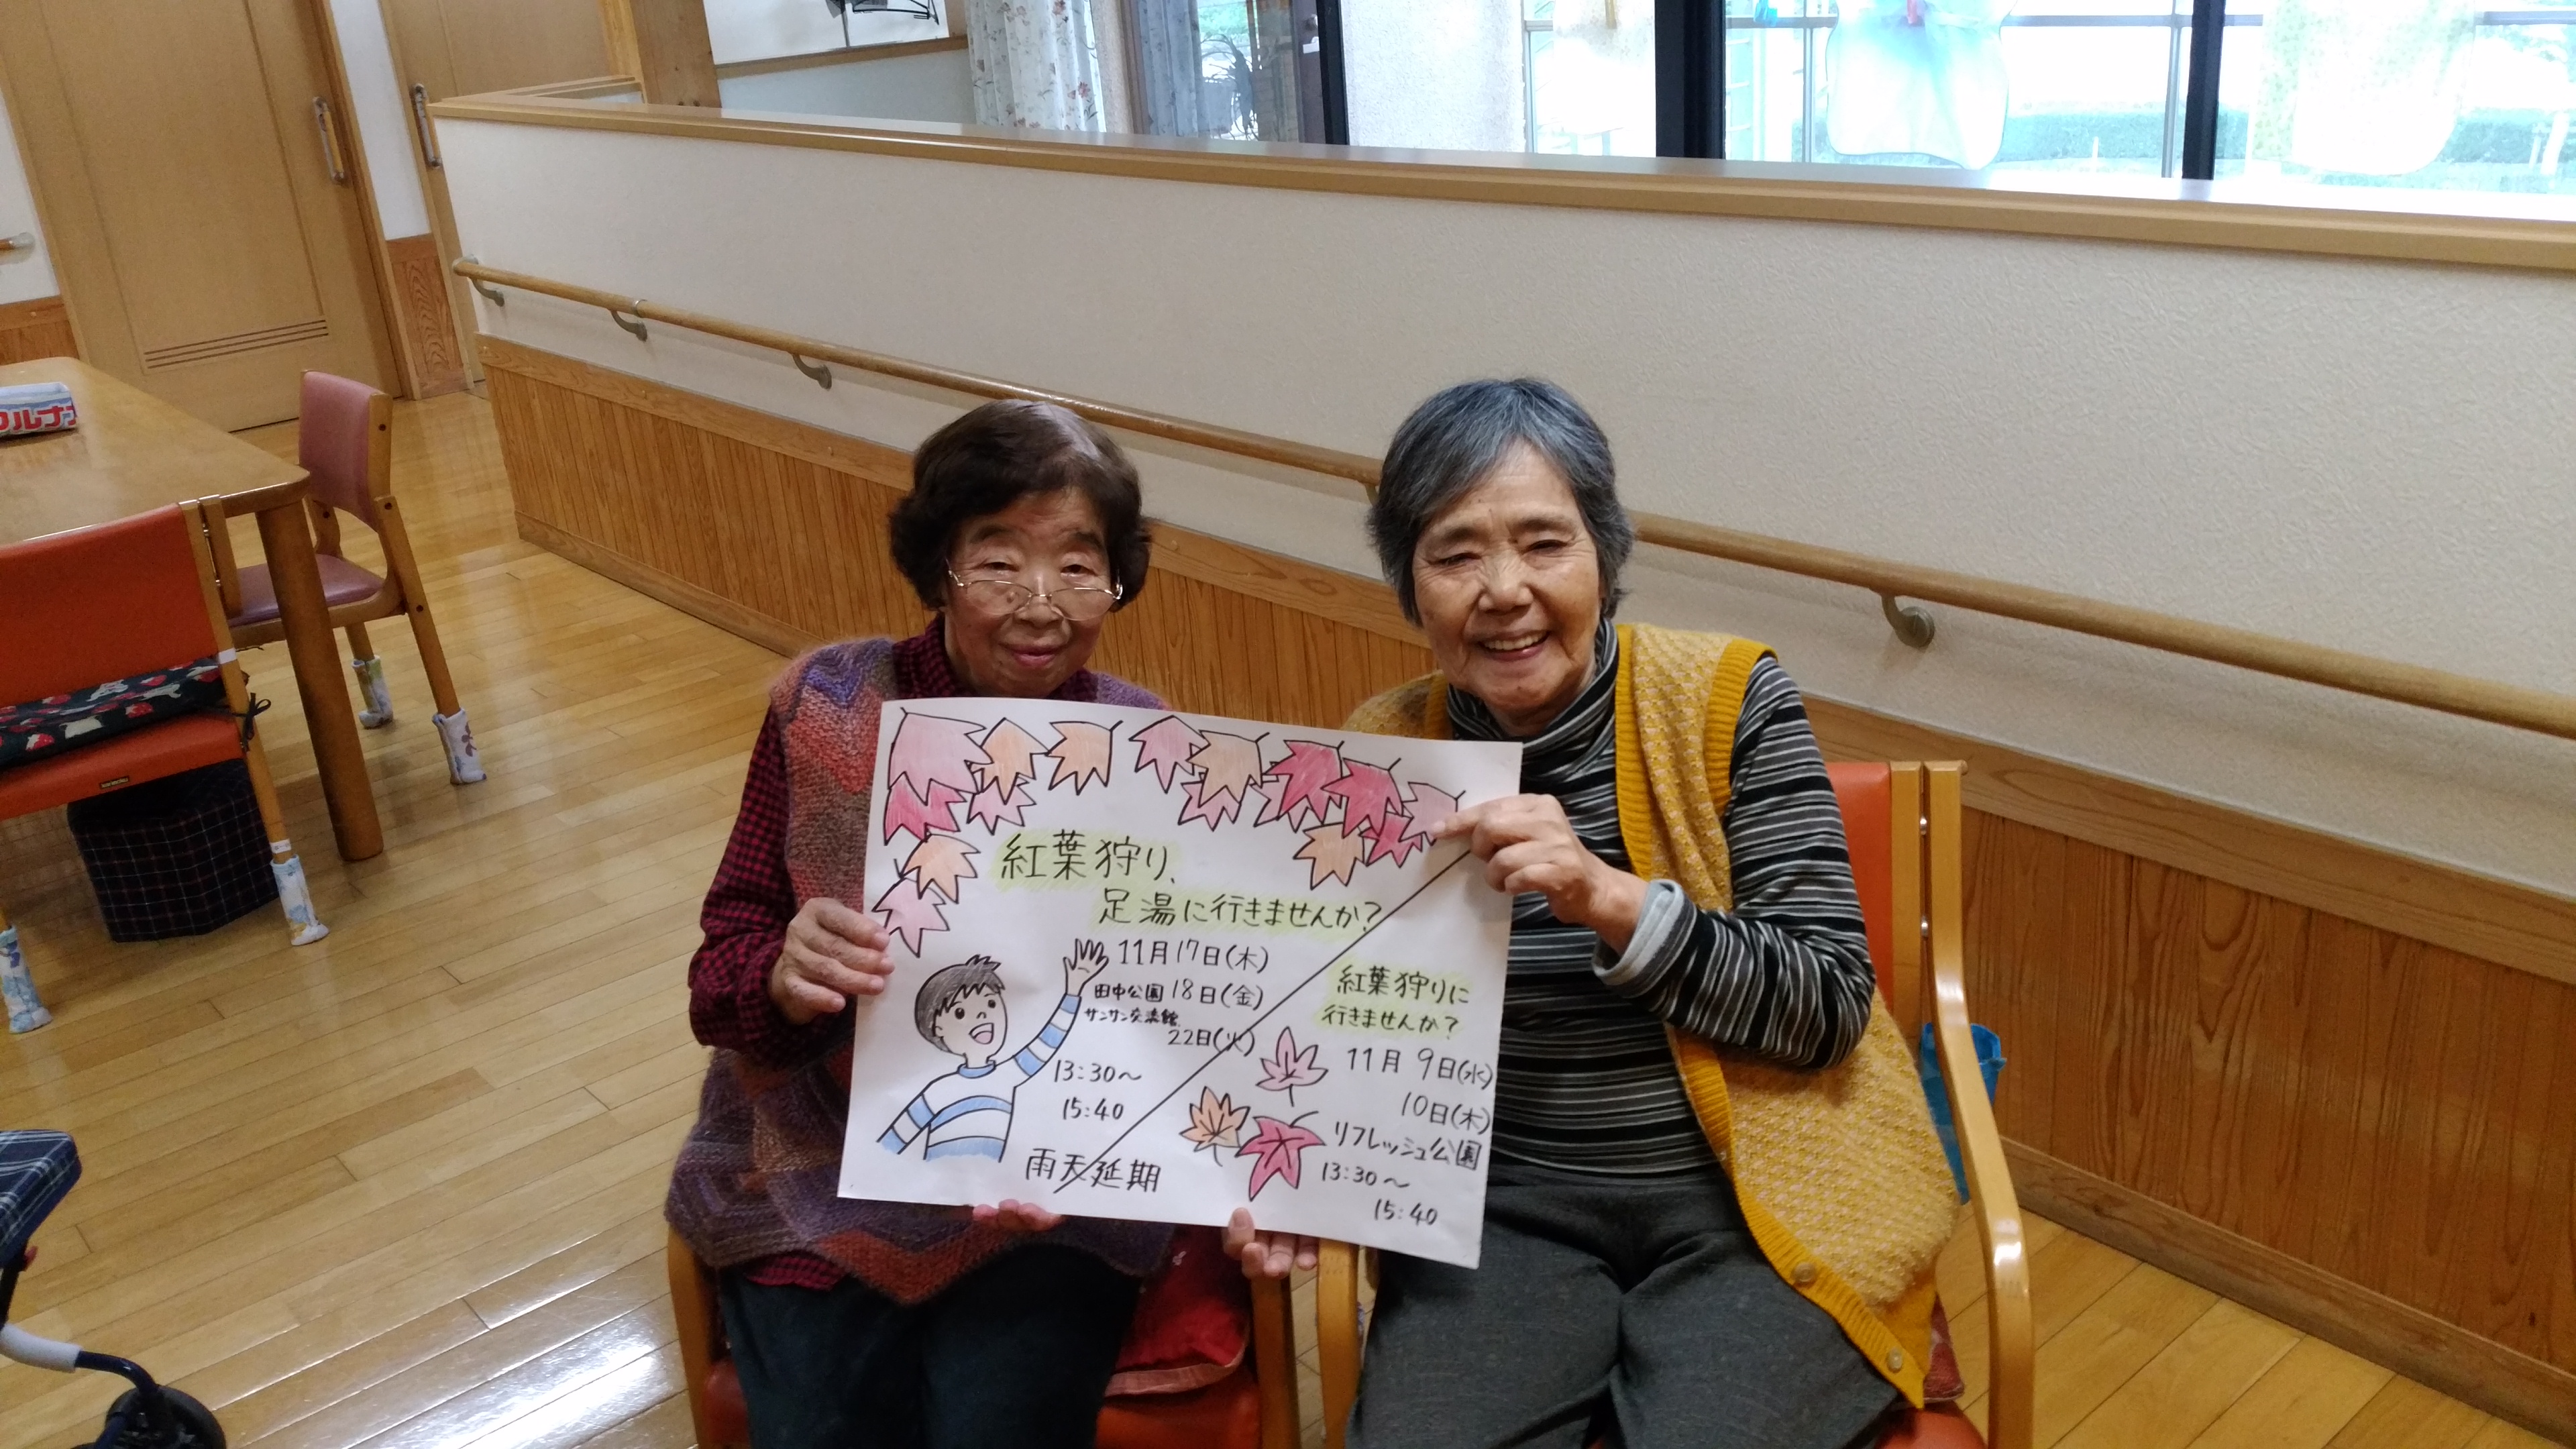 紅葉狩り、
足湯に行きませんか？
11月17日(木)
田中公園 18日(金)
サンサン交流館
22日(火)
13:30〜
15:40
雨天延期
紅葉狩りに
行きませんか？
11月 9日(水)
10日(木)
リフレッシュ公園
13:30〜
15:40